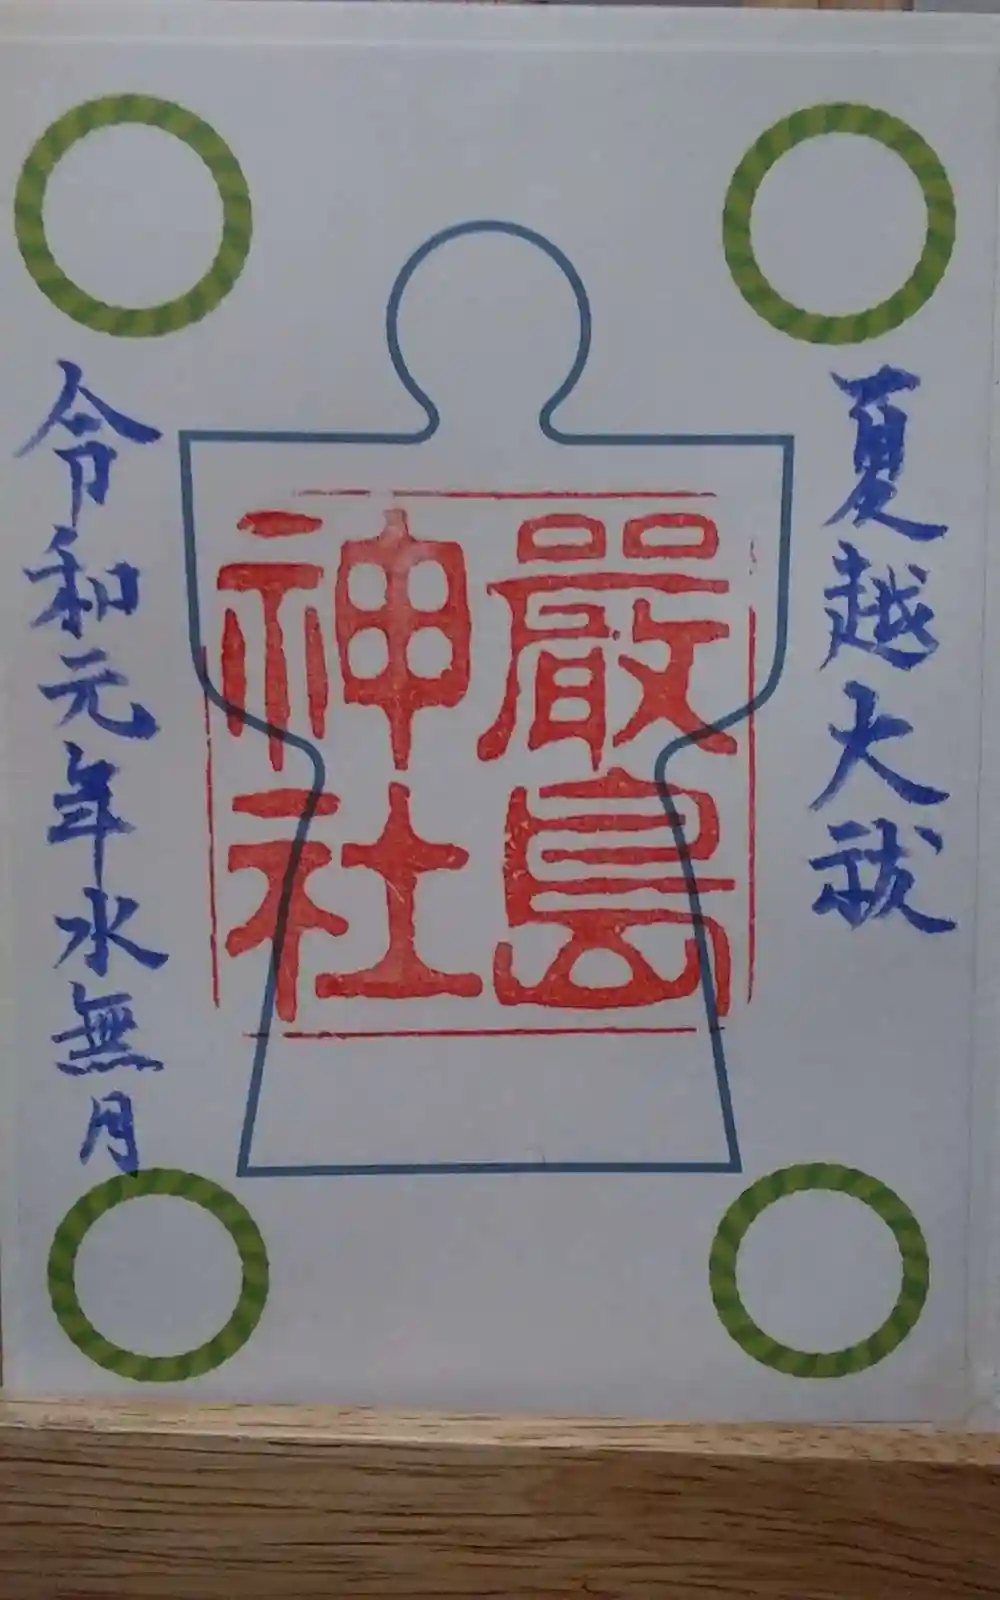 夏越大祓
嚴島
神社
令和元年水無月